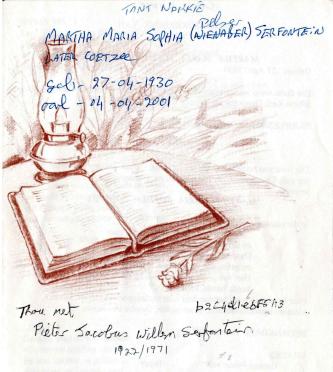 TANT NAKKIE
Pelser
MARTHA MARIA SOPHIA (NIENABER) SERFONTEIN
LATER COETZEE
geb - 27-04-1930
oorl - 04-04-2001
Trou met
b2c4d1e6f5g3
Pieter Jacobus Willem Serfontein
1922/1971